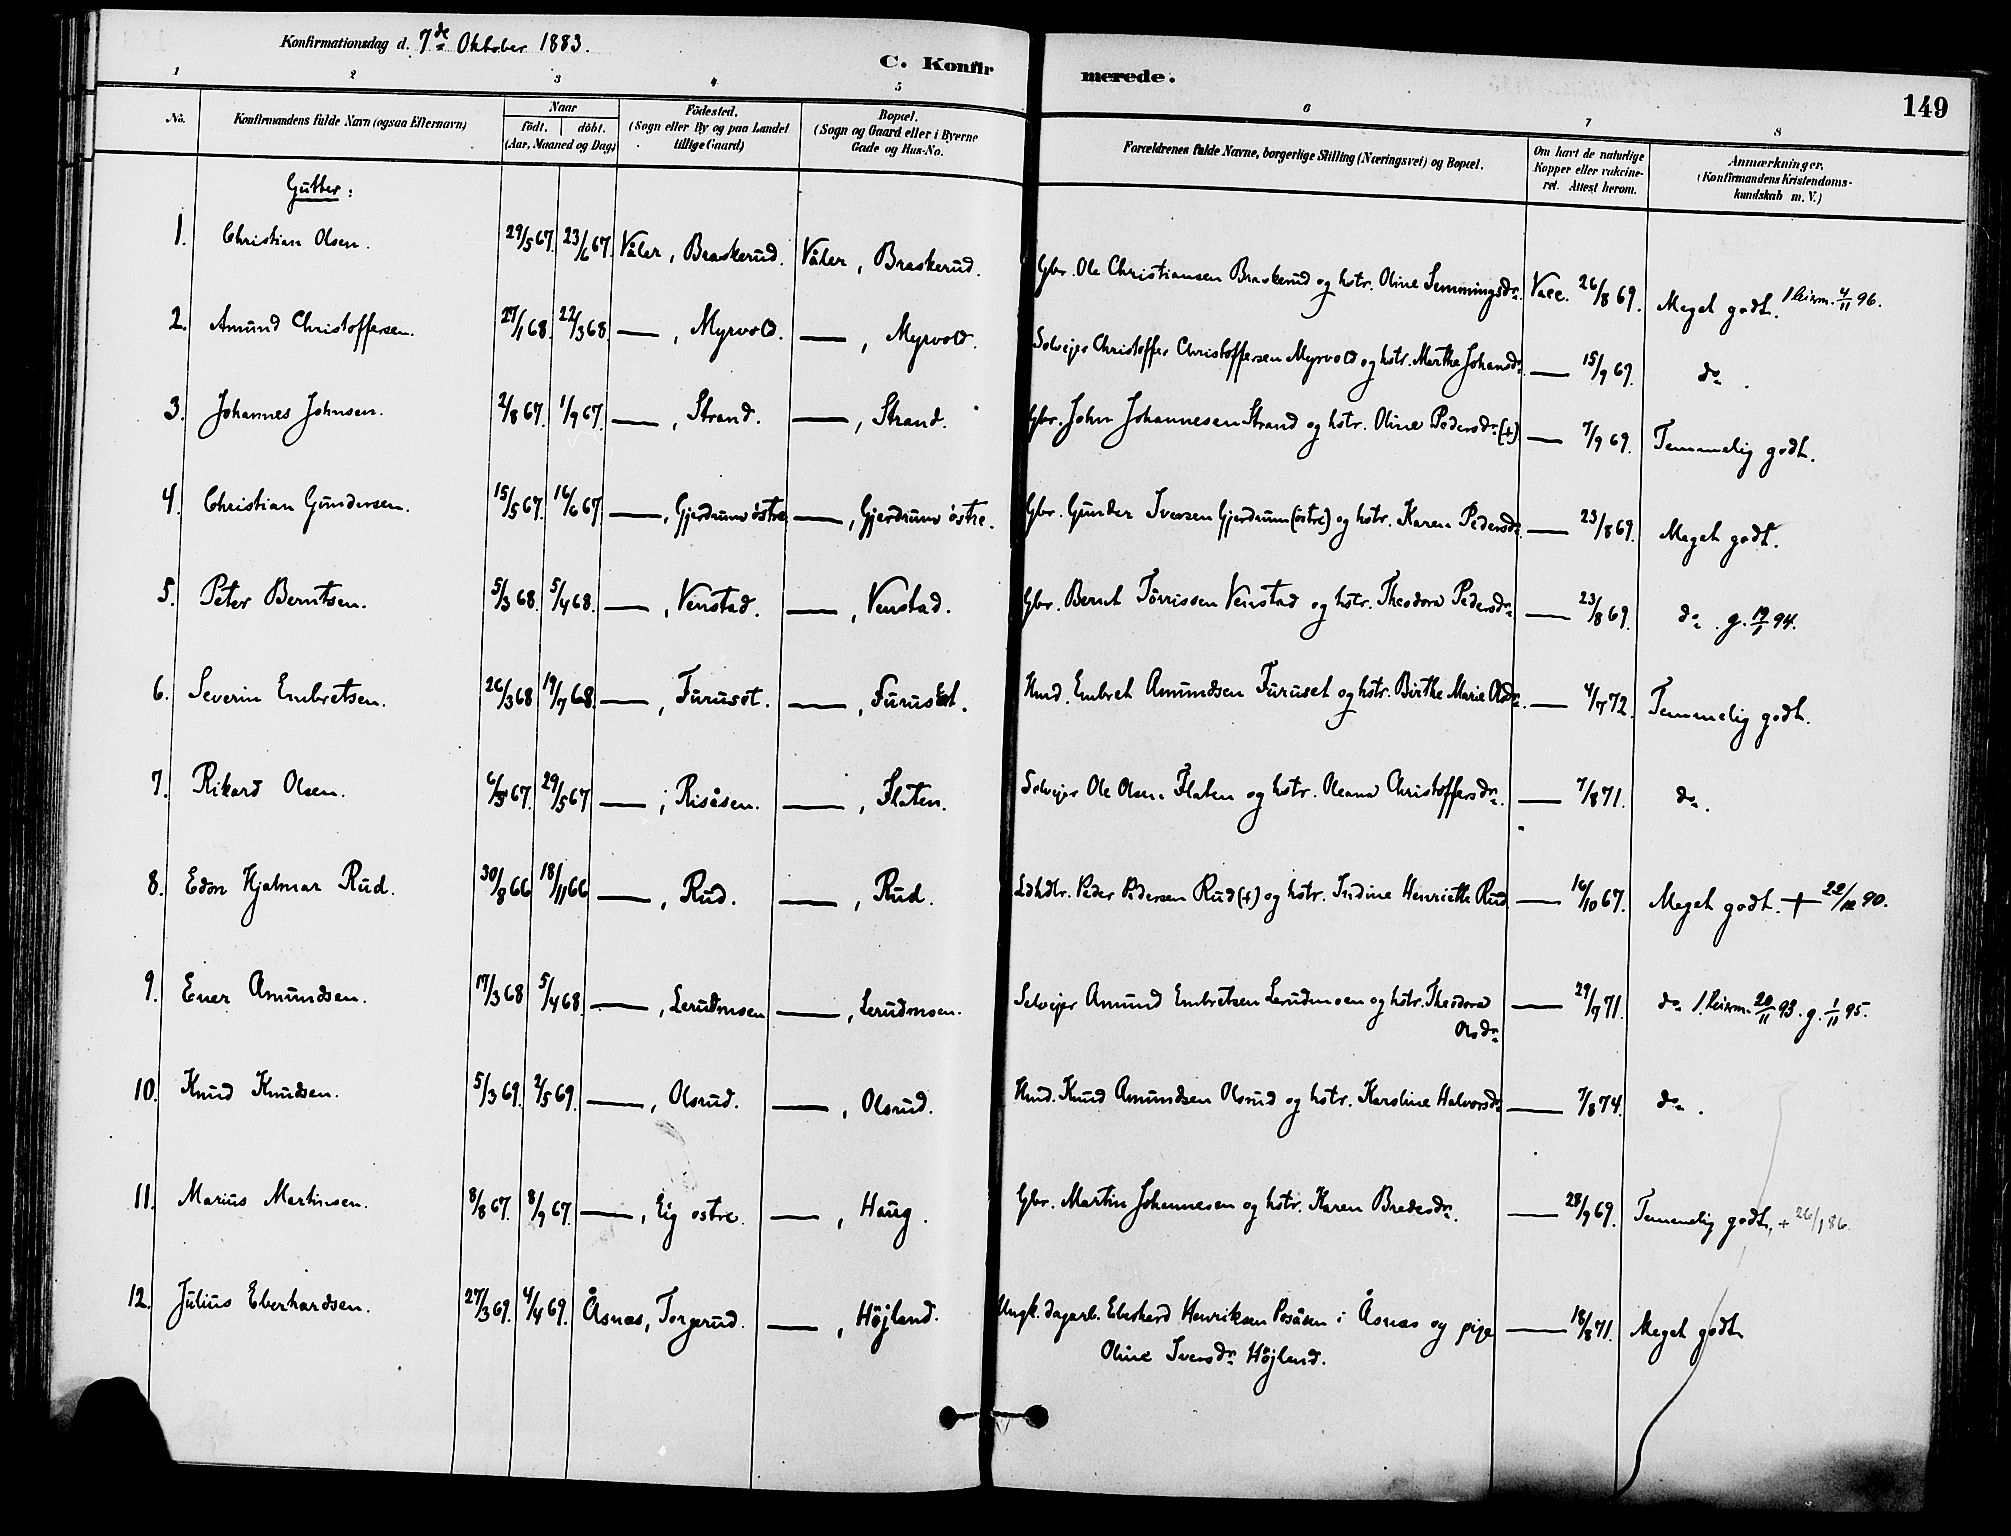 Konfirmationsdag d. 7de Oktober 1883.
C. Konfirmerede.
149
1 2 3 4 5 6 7 8
No. Konfirmandens fulde Navn (ogsaa Efternavn) Naar födt. döbt. (Aar, Maaned og Dag) Födested. (Sogn eller By og paa Landet tillige Gaard) Bopæl. (Sogn og Gaard eller i Byerne Gade og Hus-No. Forældrenes fulde Navne, borgerlige Stilling (Næringsvei) og Bopæl. Om havt de naturlige Kopper eller vakcineret. Attest herom. Anmærkninger. (Konfirmandens Kristendomskundskab m. V.)
Gutter:
1. Christian Olsen. 29/5 67. 23/6 67. Våler, Braskerud. Våler, Braskerud. Gbr. Ole Christiansen Braskerud og hstr. Oline Semmingsdr. Vacc. 26/8 69. Meget godt. 4/11 96.
2. Amund Christoffersen. 27/1 68. 22/3 68. —, Myrvold. —, Myrvold. Selvejer Christoffer Christoffersen Myrvold og hstr. Marthe Johansdr. — 15/9 69. do.
3. Johannes Johnsen. 2/8 67. 1/9 67. —, Strand. —, Strand. Gbr. John Johannesen Strand og hstr. Oline Pedersdr. (+) — 7/9 69. Temmelig godt.
4. Christian Gundersen. 15/5 67. 16/6 67 —, Gjerdrum östre —, Gjerdrum östre. Gbr. Gunder Iversen Gjerdrum (östre) og hstr. Karen Pedersdr. — 23/8 69. Meget godt.
5. Peter Berntsen. 5/3 68. 5/4 68. —, Venstad. —, Venstad. Gbr. Bernt Törrissen Venstad og hstr. Theodora Pedersdr. — 23/8 69. do. g. 94.
6. Severin Embretsen. 26/3 68 19/7 68. —, Furuset. —, Furuset. Hmd. Embret Amundsen Furuset og hstr. Birthe Marie Olsdr. — 4/7 72. Temmelig godt.
7. Rikard Olsen. 67. 29/5 67 —, Risåsen. —, Flaten. Selvejer Ole Olsen Flaten og hstr. Oleana Christoffersdr. — 7/8 71. do.
8. Edon Hjalmar Rud. 30/8 66 18/11 66 —, Rud. —, Rud. Ldhdlr. Peder Pedersen Rud (+) og hstr. Henriette Rud — 16/10 67. Meget godt. + 22/12 90.
9. Ener Amundsen. 17/3 68 5/4 68. —, Lerudmoen —, Lerudmoen. Selvejer Amund Embretsen Lerudmoen og hstr. Theodora
Olsdr. — 29/7 71. do 20/11 93. g. 1/11 95.
10. Knud Knudsen. 5/3 69. 2/5 69. —, Olsrud. —, Olsrud. Hmd. Knud Amundsen Olsrud og hstr. Karoline Halvorsdr. — 7/8 74. do.
11. Marius Martinsen. 8/8 67. 8/9 67. —, Eig ostre. —, Haug. Gbr. Martin Johannesen og hstr. Karen Bredesdr. — 28/9 69. Temmelig godt, + 26/1 86.
12. Julius Eberhardsen. 27/3 69. 4/4 69. Åsnæs, Torgerud. —, Höjland. Ungk. dagarb. Eberhard Henriksen Posåsen i Åsnæs og pige
Oline Iversdr. Höjland. — 18/8 71. Meget godt